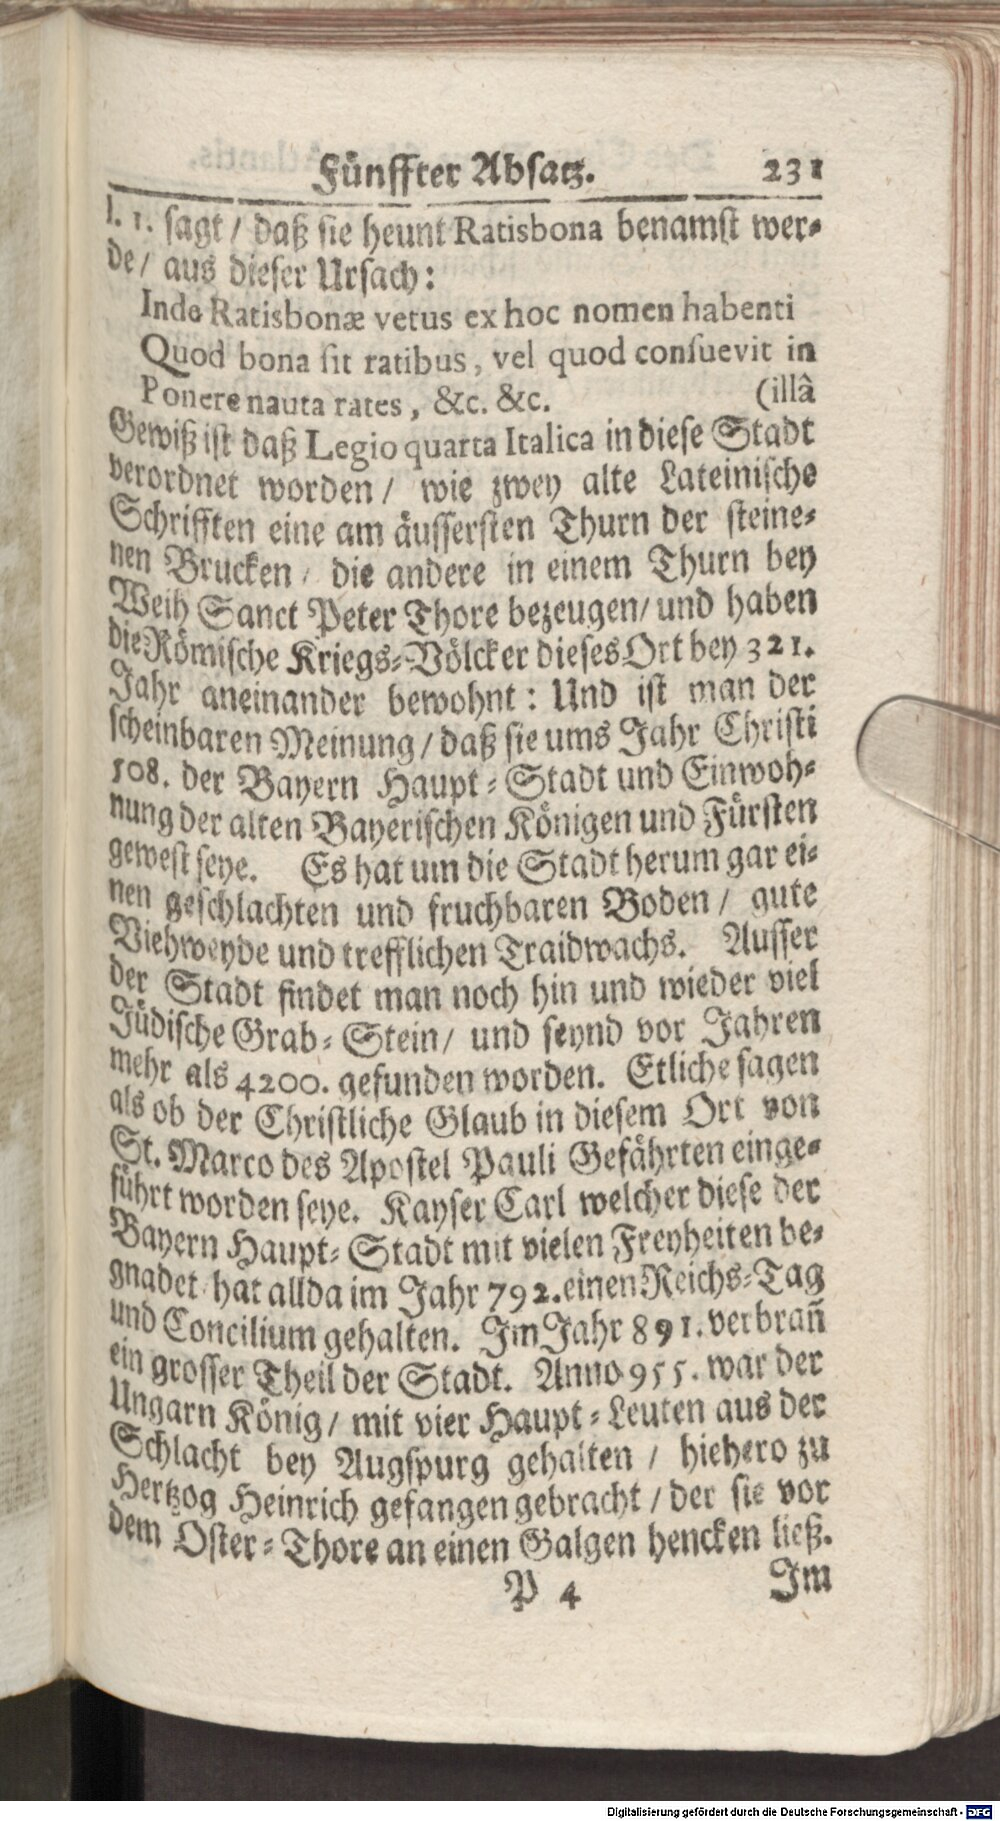 Fünffter Absatz. 231
l. 1. sagt / daß sie heunt Ratisbona benamst wer-
de / aus dieser Ursach:
Inde Ratisbonæ vetus ex hoc nomen habenti
Quod bona sit ratibus, vel quod consuevit in
Ponere nauta rates, &c. &c. (illâ
Gewiß ist daß Legio quarta Italica in diese Stadt
verordnet worden / wie zwey alte Lateinische
Schrifften eine am äussersten Thurn der steine-
nen Brucken / die andere in einem Thurn bey
Weih Sanct Peter Thore bezeugen / und haben
die Römische Kriegs-Völcker dieses Ort bey 321.
Jahr aneinander bewohnt: Und ist man der
scheinbaren Meinung / daß sie ums Jahr Christi
508. der Bayern Haupt-Stadt und Einwoh-
nung der alten Bayerischen Königen und Fürsten
gewest seye. Es hat um die Stadt herum gar ei-
nen geschlachten und fruchbaren Boden / gute
Viehweyde und trefflichen Traidwachs. Ausser
der Stadt findet man noch hin und wieder viel
Jüdische Grab-Stein / und seynd vor Jahren
mehr als 4200. gefunden worden. Etliche sagen
als ob der Christliche Glaub in diesem Ort von
St. Marco des Apostel Pauli Gefährten einge-
führt worden seye. Kayser Carl welcher diese der
Bayern Haupt-Stadt mit vielen Freyheiten be-
gnadet / hat allda im Jahr 792. einen Reichs-Tag
und Concilium gehalten. Im Jahr 891. verbrañ
ein grosser Theil der Stadt. Anno 955. war der
Ungarn König / mit vier Haupt-Leuten aus der
Schlacht bey Augspurg gehalten / hiehero zu
Hertzog Heinrich gefangen gebracht / der sie vor
dem Oster-Thore an einen Galgen hencken ließ.
P 4 Im
Digitalisierung gefördert durch die Deutsche Forschungsgemeinschaft - DFG